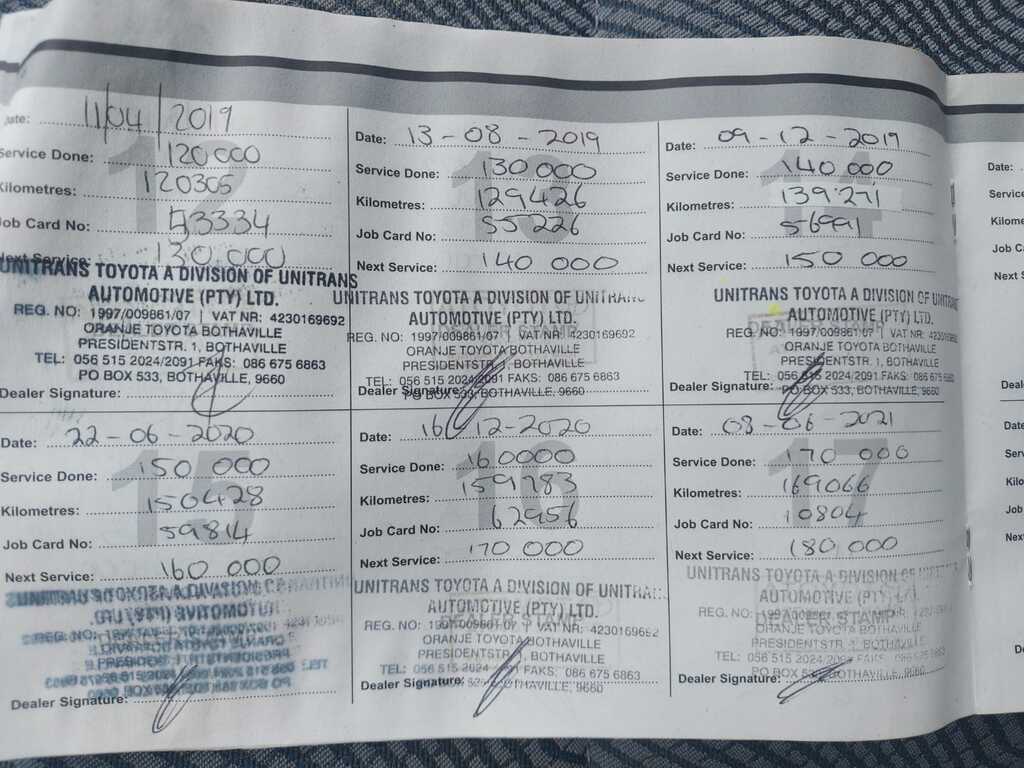 ate: 11/04/2019
Service Done: 120000
Kilometres: 120305
Job Card No: 53334
Next Service: 130 000
UNITRANS TOYOTA A DIVISION OF UNITRANS
AUTOMOTIVE (PTY) LTD.
REG. NO: 1997/009861/07 | VAT NR: 4230169692
ORANJE TOYOTA BOTHAVILLE
PRESIDENTSTR. 1, BOTHAVILLE
TEL: 056 515 2024/2091 FAKS: 086 675 6863
PO BOX 533, BOTHAVILLE, 9660
Dealer Signature:
13
Date: 13-08-2019
Service Done: 130 000
Kilometres: 129426
Job Card No: 55226
Next Service: 140 000
UNITRANS TOYOTA A DIVISION OF UNITRANS
AUTOMOTIVE (PTY) LTD.
DEALER STAMP
REG. NO: 1997/009861/07 | VAT NR: 4230169692
ORANJE TOYOTA BOTHAVILLE
PRESIDENTSTR. 1, BOTHAVILLE
TEL: 056 515 2024/2091 FAKS: 086 675 6863
PO BOX 533, BOTHAVILLE, 9660
Dealer Signature:
14
Date: 09-12-2019
Service Done: 140 000
Kilometres: 139271
Job Card No: 56991
Next Service: 150 000
UNITRANS TOYOTA A DIVISION OF UNITRANS
AUTOMOTIVE (PTY) LTD.
REG. NO: 1997/009861/07 | VAT NR: 4230169692
ORANJE TOYOTA BOTHAVILLE
PRESIDENTSTR. 1, BOTHAVILLE
TEL: 056 515 2024/2091 FAKS: 086 675 6
PO BOX 533, BOTHAVILLE, 9660
Dealer Signature:
15
Date: 22-06-2020
Service Done: 150 000
Kilometres: 150428
Job Card No: 59814
Next Service: 160 000
Dealer Signature:
16
Date: 16/12-2020
Service Done: 160000
Kilometres: 159783
Job Card No: 62956
Next Service: 170 000
UNITRANS TOYOTA A DIVISION OF UNITRANS
AUTOMOTIVE (PTY) LTD.
STAMP
REG. NO: 1997/009861/07 | VAT NR: 4230169692
ORANJE TOYOTA BOTHAVILLE
PRESIDENTSTR. 1, BOTHAVILLE
TEL: 056 515 2024 FAKS: 086 675 6863
BOTHAVILLE, 9660
Dealer Signature:
17
Date: 08-06-2021
Service Done: 170 000
Kilometres: 169066
Job Card No: 10804
Next Service: 180 000
UNITRANS TOYOTA A DIVISION OF
AUTOMOTIVE (PTY)
DEALER STAMP
REG. NO: 1997/009861/07 | VAT NR: 4230169692
ORANJE TOYOTA BOTHAVILLE
PRESIDENTSTR. 1, BOTHAVILLE
TEL: 056 515 2024 FAKS: 086 675 6863
PO BOX 533, BOTHAVILLE, 9660
Dealer Signature:
Date:
Service
Kilome
Job C
Next S
Deal
Date
Serv
Kilo
Job
Nex